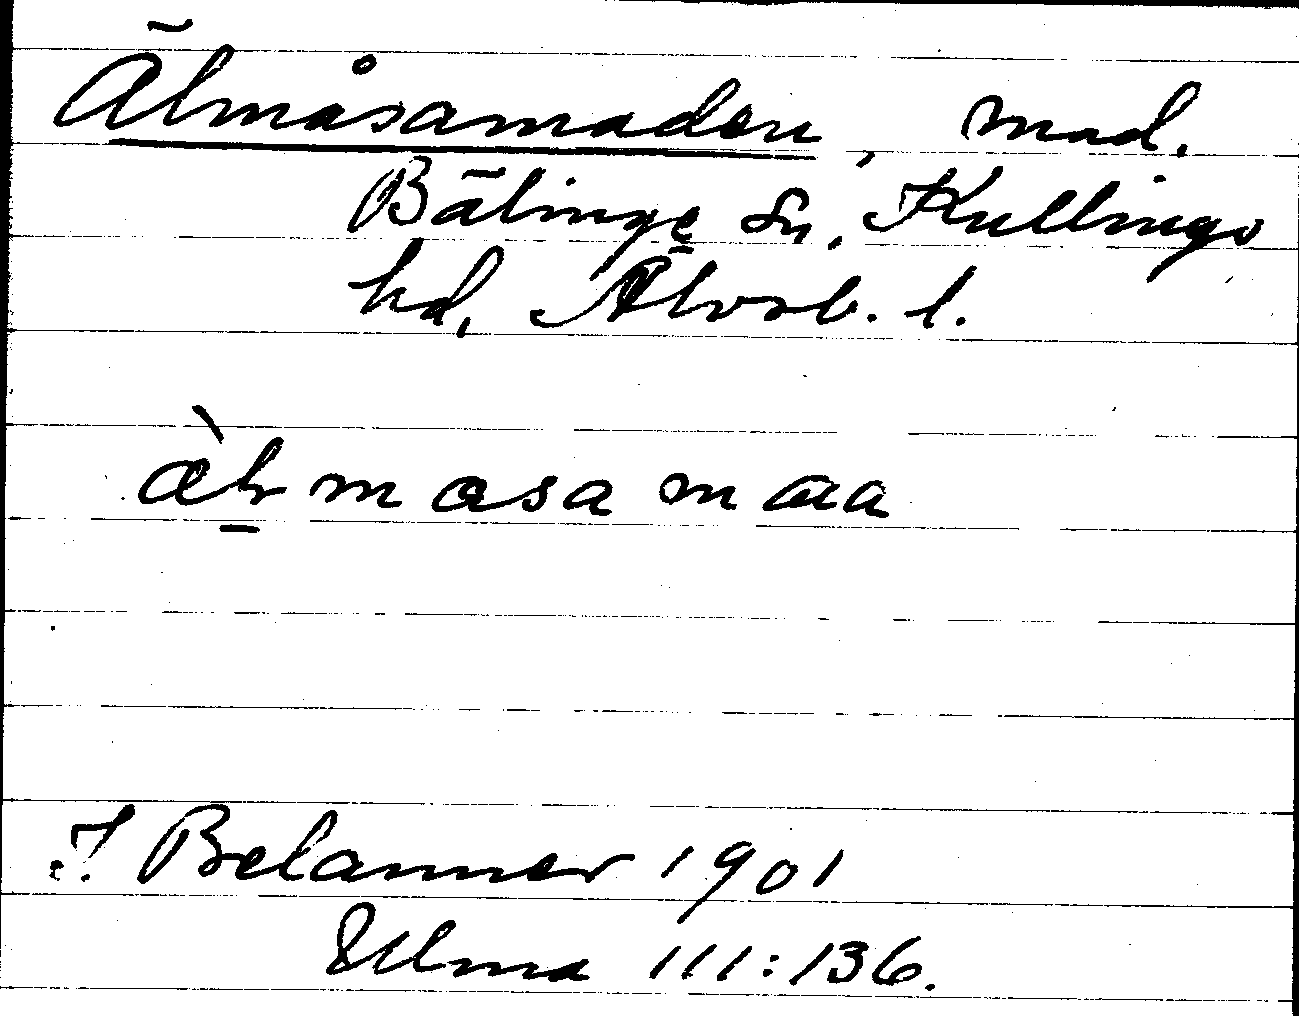 Älmåsamaden, mad.
Bälinge sn, Kullings
hd, Älvsb. l.
æ̀lmasamaa
J. Belanner 1901
Ulma 111:136.